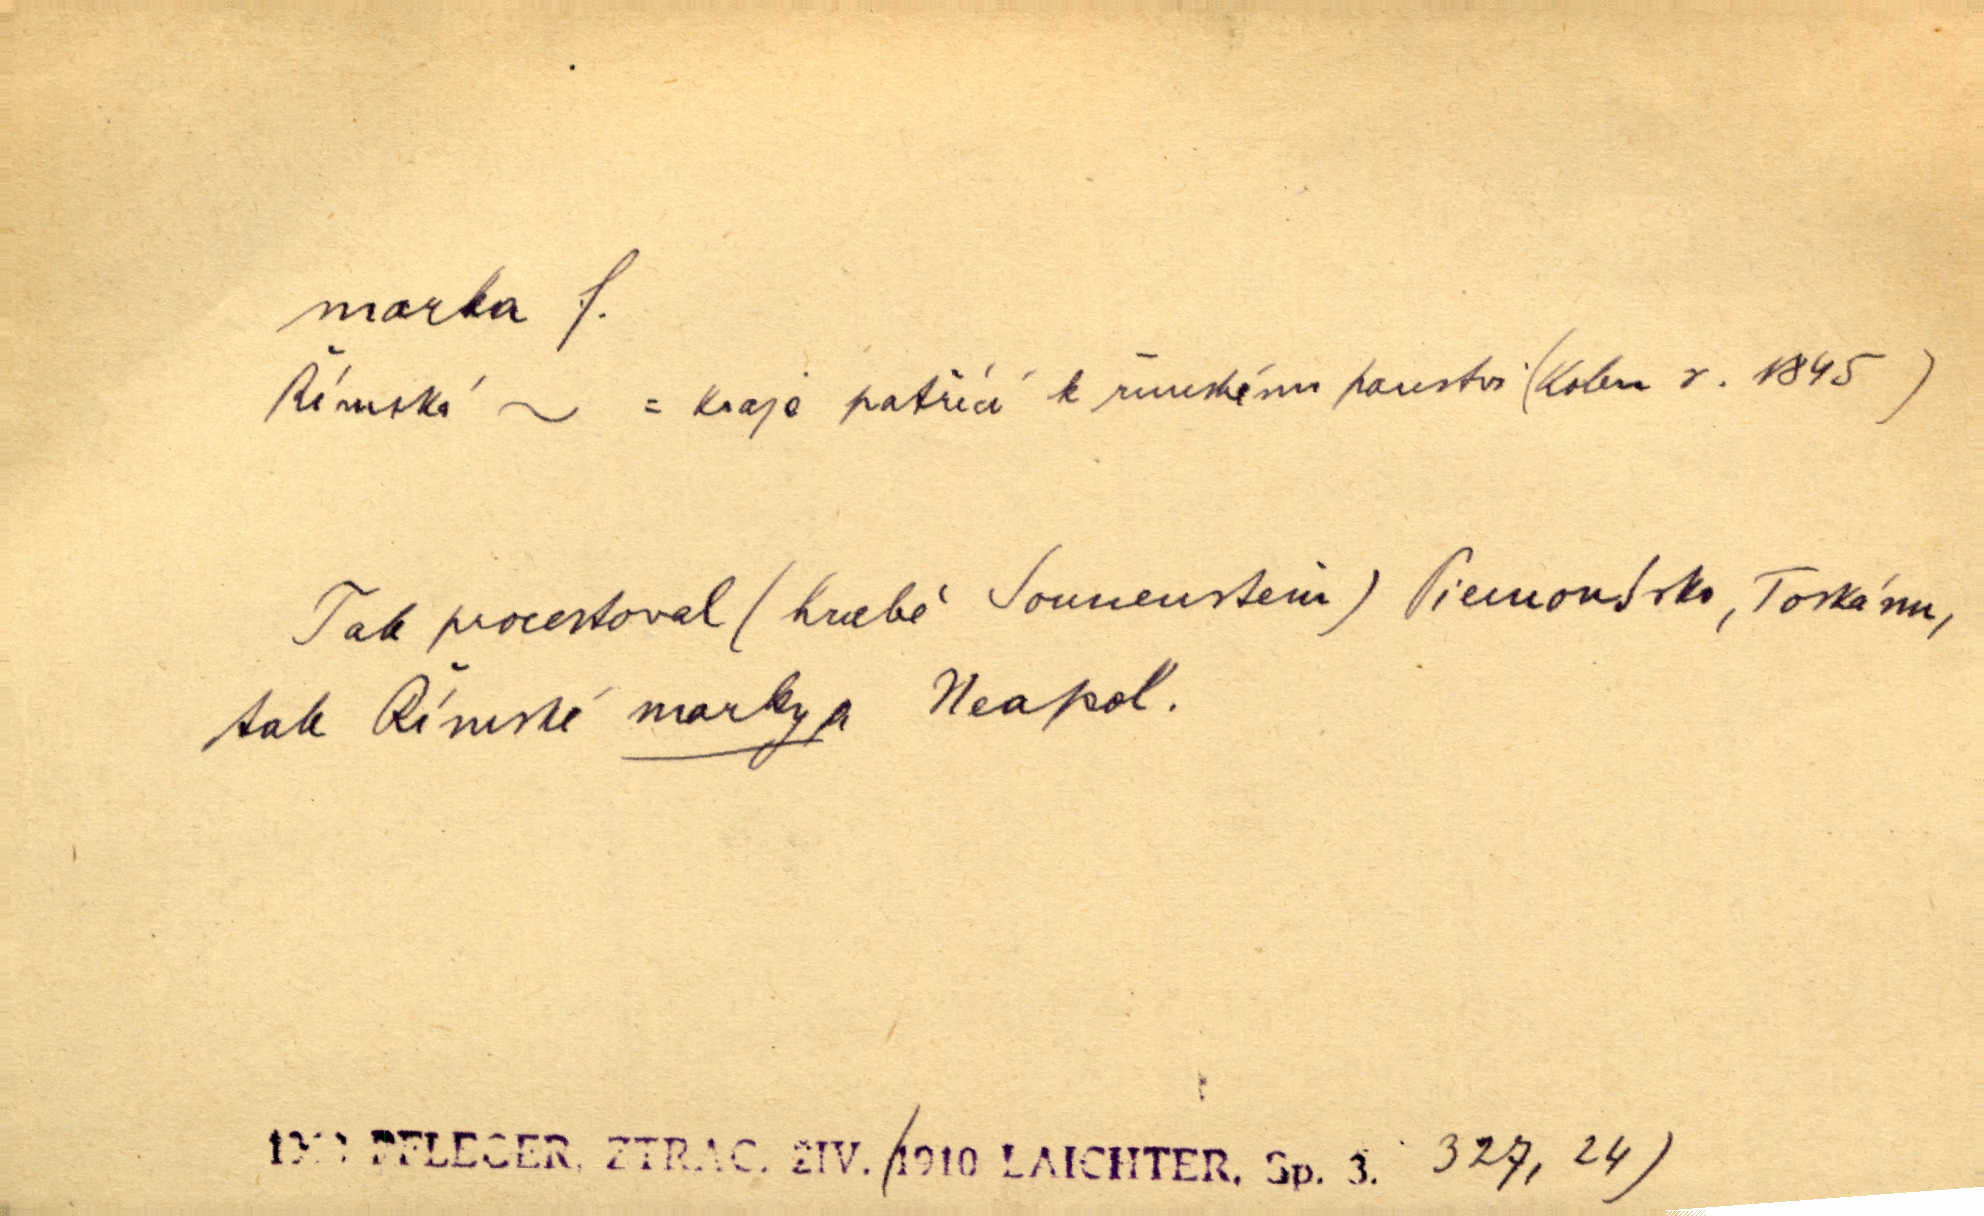 marka f.
Římská ~ = kraje patřící k římskému panství (kolem r. 1845)
Tak procestoval (hrabě Sonnenstein) Piemontsko, Toskánu,
tak Římské marky a Neapol.
PFLEGER, ZTRAC. ŽIV. (1910 LAICHTER, Sp. 3. 327, 24)